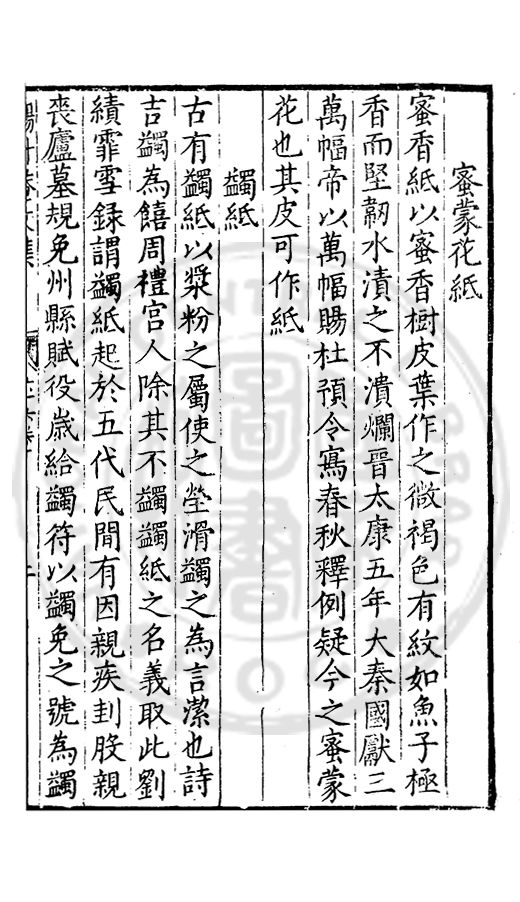 蜜蒙花紙
蜜香紙以蜜香樹皮葉作之微褐色有紋如魚子極
香而堅韌水漬之不潰爛晉太康五年大秦國獻三
萬幅帝以萬幅賜杜預令寫春秋釋例疑今之蜜蒙
花也其皮可作紙
蠲紙
古有蠲紙以漿粉之屬使之瑩滑蠲之為言潔也詩
吉蠲為饎周禮宮人除其不蠲蠲紙之名義取此劉
績霏雪錄謂蠲紙起於五代民間有因親疾刲股親
喪廬墓規免州縣賦役歲給蠲符以蠲免之號為蠲